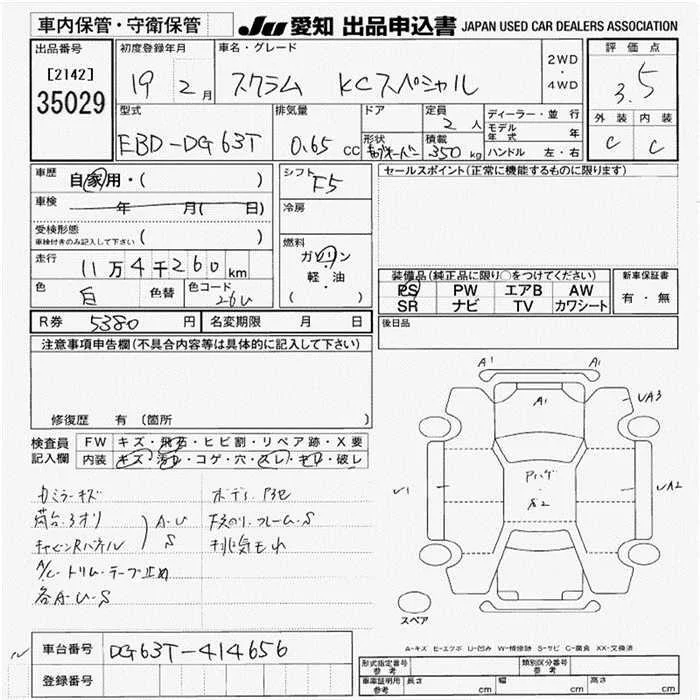 車内保管・守衛保管
JU 愛知 出品申込書 JAPAN USED CAR DEALERS ASSOCIATION
出品番号
[2142]
35029
初度登録年月
19 2月
車名・グレード
スクラム KCスペシャル
2WD
・
4WD
評価点
3.5
外装 内装
C C
型式
EBD-DG63T
排気量
0.65 cc
ドア
形状
定員
2人
積載
350kg
ディーラー・並行
モデル年式 年
ハンドル 左・右
車歴
自家用・( )
車検 年 月( 日)
受検形態
車検付きのみ記入して下さい ( )
走行
11万4千260km
色
白
色替
色コード
26U
シフト
F5
冷房
燃料
ガソリン
・
軽・油
( )
セールスポイント(正常に機能するものに限ります)
装備品(純正品に限り○をつけてください)
PS PW エアB AW
SR ナビ TV カワシート
新車保証書
有・無
R券 5380円
名変期限 月 日
後日品
注意事項申告欄(不具合内容等は具体的に記入して下さい)
修復歴 有(箇所 )
検査員
記入欄
FW キズ・飛石・ヒビ割・リペア跡・X要
内装 キズ・汚れ・コゲ・穴・スレ・キレ・破レ
カミラーキズ
荷台・3オリ
キャビンRパネル
A・U
S
A/C・トリム・テープ止め
各A・U・S
ボディ
フレーム・S
排気モれ
A1 A1
A1
UA3
UA2
U1
スペア
A-キズ E-エクボ U-凹み W-補修跡 S-サビ C-腐食 XX-交換済
車台番号 DG63T-414656
登録番号
形式指定番号
参考
類別区分番号
参考
車庫証明用
参考
長さ cm
幅 cm
高さ cm